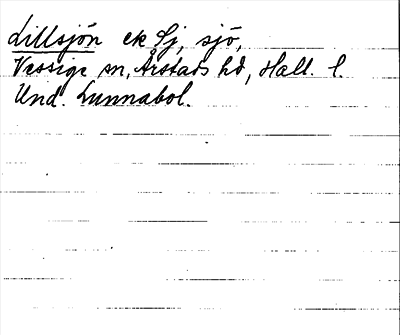 Lillsjön ek Sj, sjö,
Vessige sn, Årstads hd, Hall. l.
Und. Lunnabol.